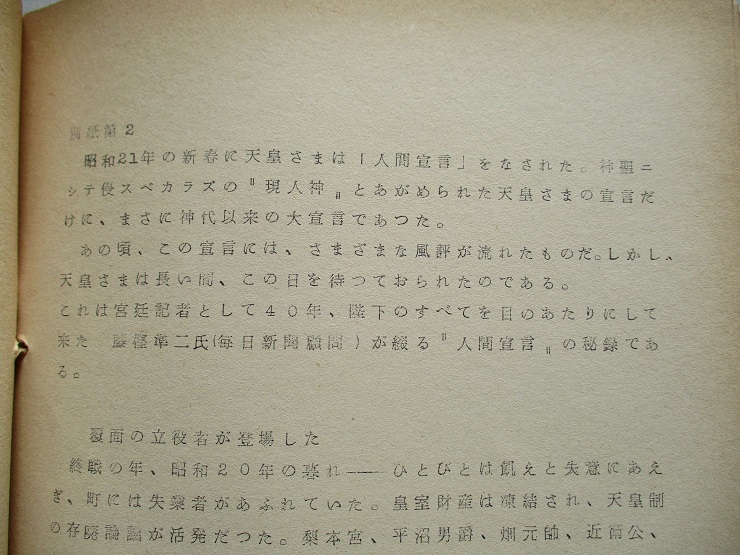 別紙第2
昭和21年の新春に天皇さまは「人間宣言」をなされた。神聖ニ
シテ侵スベカラズの『現人神』とあがめられた天皇さまの宣言だ
けに、まさに神代以来の大宣言であつた。
あの頃、この宣言には、さまざまな風評が流れたものだ。しかし、
天皇さまは長い間、この日を待つておられたのである。
これは宮廷記者として40年、陛下のすべてを目のあたりにして
来た 藤樫準二氏(毎日新聞顧問)が綴る『人間宣言』の秘録であ
る。
覆面の立役者が登場した
終戦の年、昭和20年の暮れ――ひとびとは飢えと失意にあえ
ぎ、町には失業者があふれていた。皇室財産は凍結され、天皇制
の存廃論議が活発だつた。梨本宮、平沼男爵、畑元帥、近衛公、